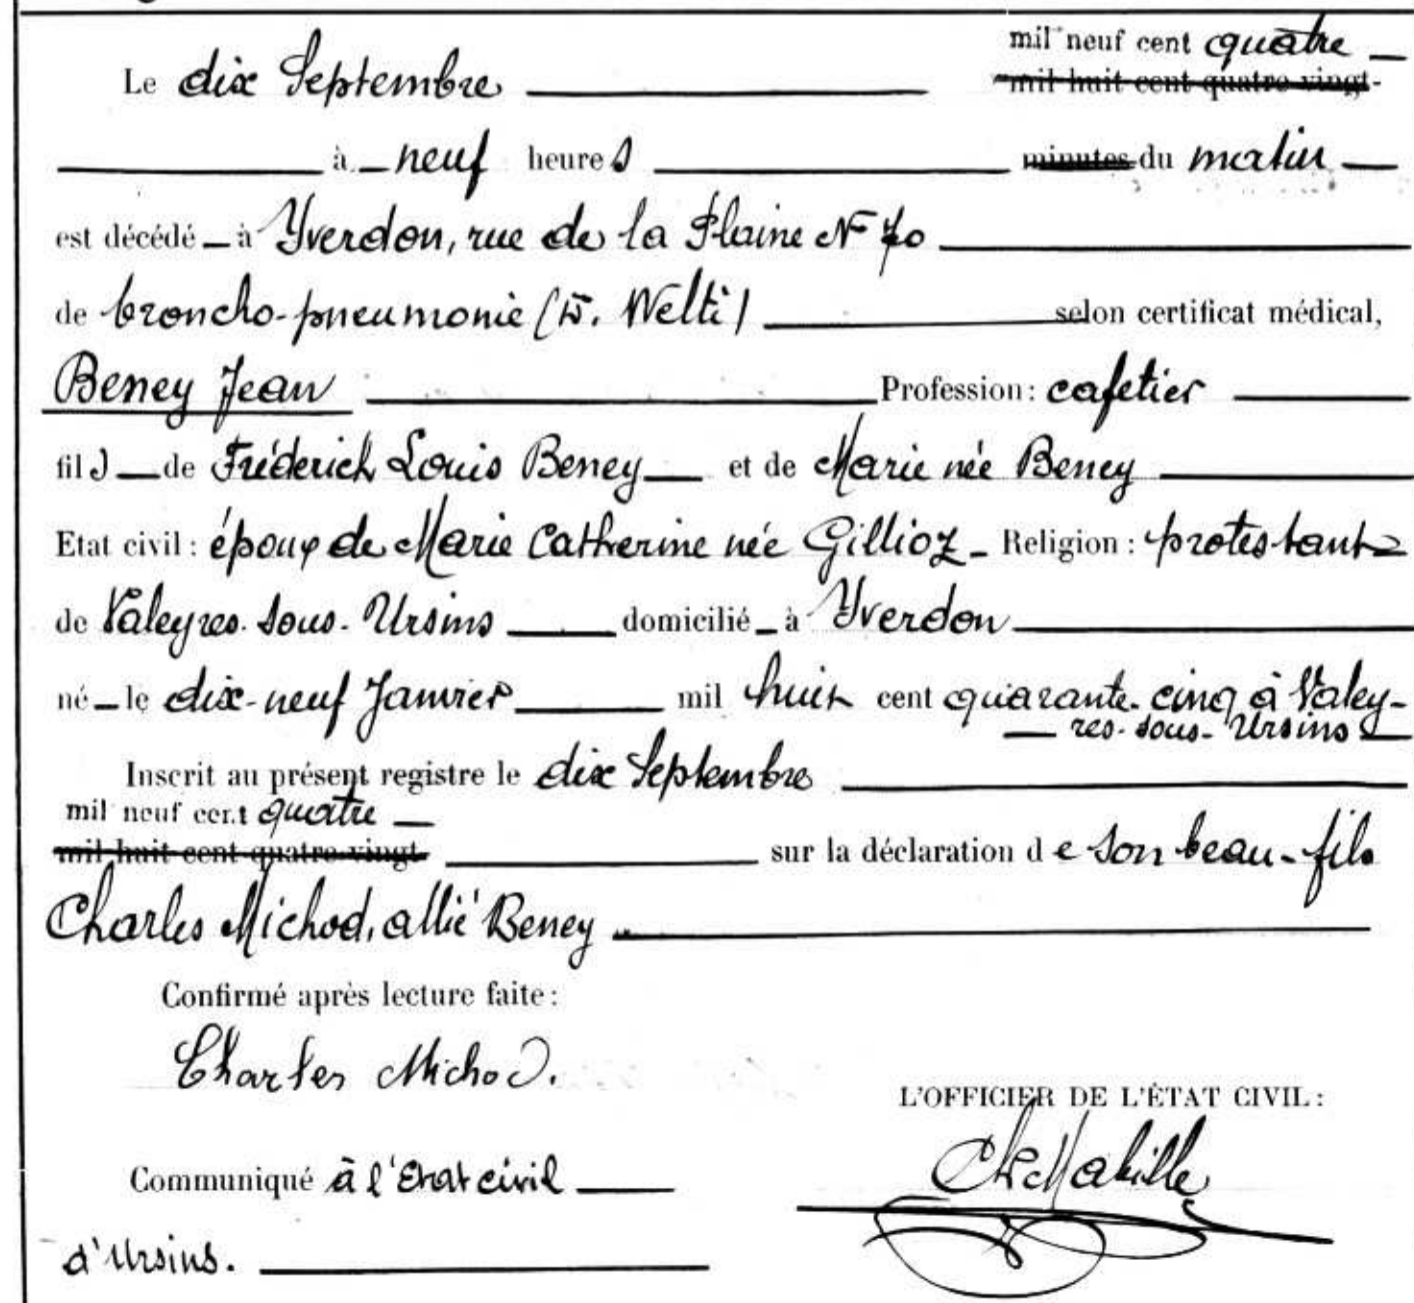 mil neuf cent quatre
Le dix Septembre mil huit cent quatre-vingt-
à neuf heures minutes du matin
est décédé à Yverdon, rue de la Plaine No 70
de broncho-pneumonie (Dr. Welti) selon certificat médical,
Beney Jean Profession: cafetier
fils de Fréderich Louis Beney et de Marie née Beney
Etat civil: époux de Marie Catherine née Gillioz Religion: protestante
de Valeyres-sous-Ursins domicilié à Yverdon
né le dix-neuf Janvier mil huit cent quarante-cinq à Valey-
res-sous-Ursins
Inscrit au présent registre le dix Septembre
mil neuf cent quatre
mil huit cent quatre-vingt sur la déclaration de son beau-fils
Charles Michod, allié Beney
Confirmé après lecture faite:
Charles Michod.
L'OFFICIER DE L'ÉTAT CIVIL:
Communiqué à l'Etat civil
d'Ursins.